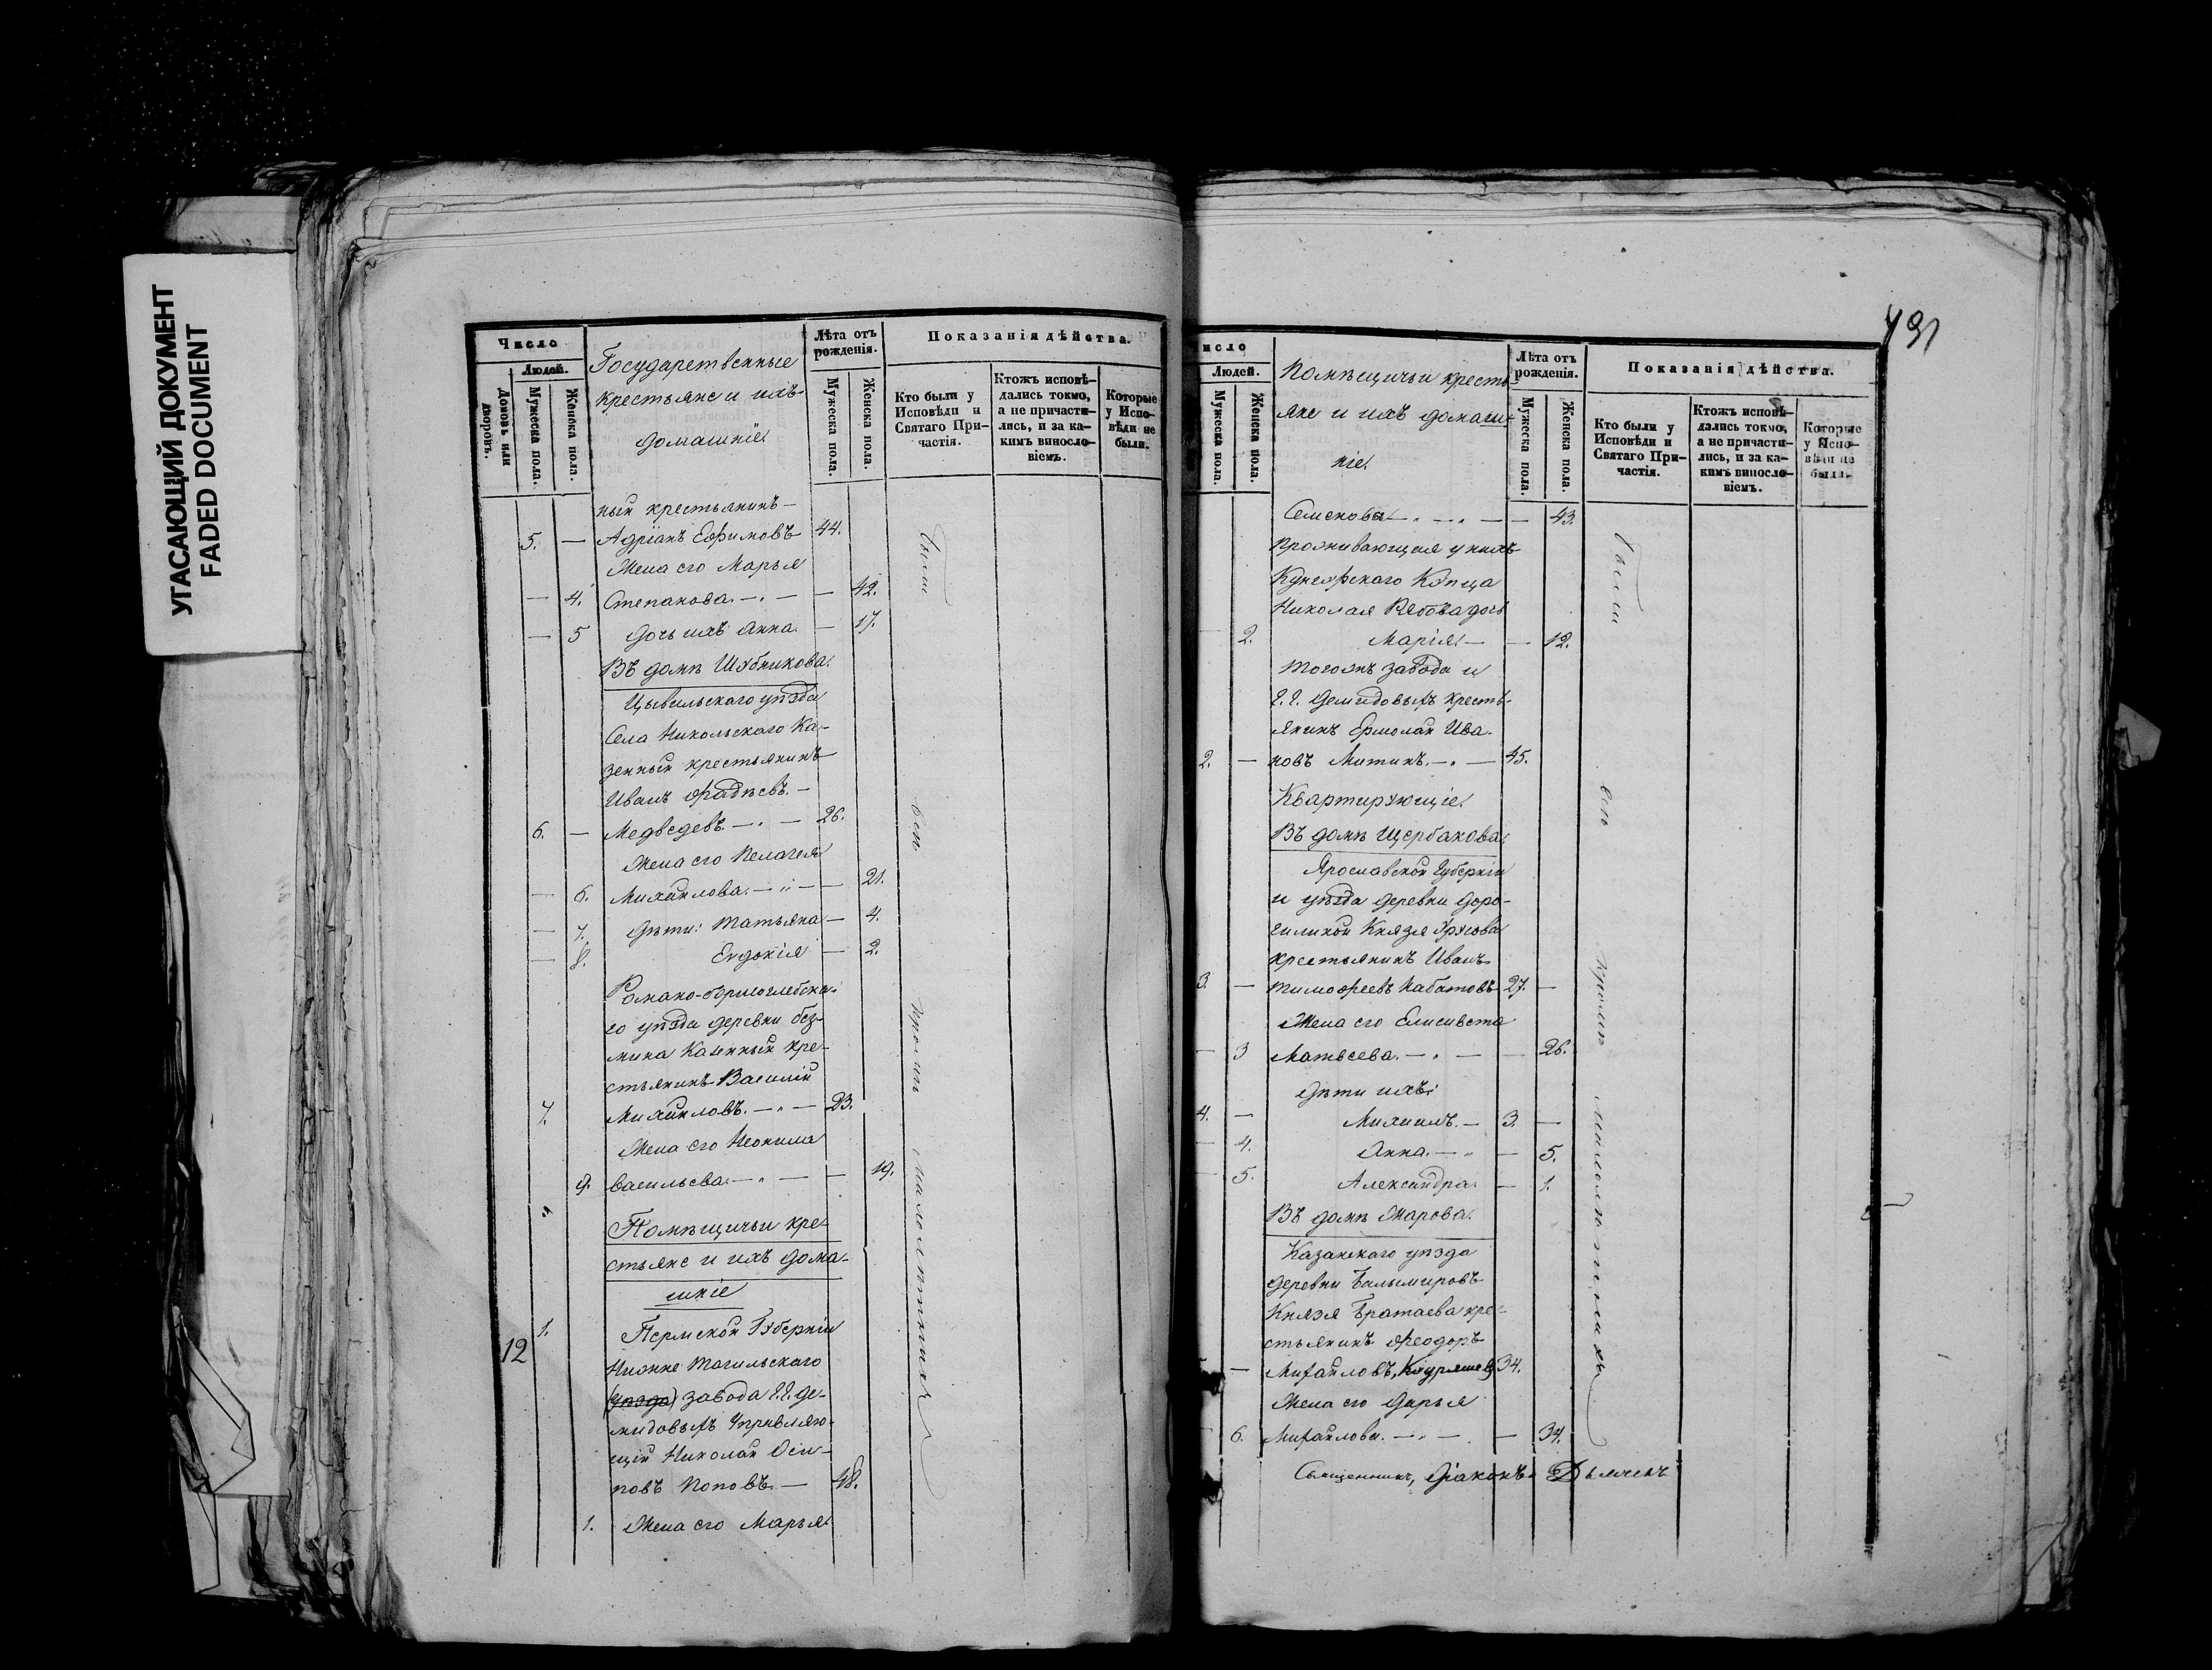 УГАСАЮЩИЙ ДОКУМЕНТ
FADED DOCUMENT
Число
Людей.
Домовъ или дворовъ.
Мужеска пола.
Женска пола.
Государственные
крестьяне и ихъ
домашніе.
Лѣта отъ рожденія.
Мужеска пола.
Женска пола.
Показанія дѣйства.
Кто были у Исповѣди и Святаго Причастія.
Ктожъ исповѣдались токмо, а не причастились, и за какимъ винословіемъ.
Которые у Исповѣди не были.
ный крестьянинъ —
5. — Адріанъ Ефимовъ 44.
Жена его Марья
— 4. Степанова. — — 42.
— 5 Дочь ихъ Анна. — 17.
Въ домѣ Шубникова.
Цывильскаго уѣзда
Села Никольскаго Ка-
зенный крестьянинъ
Иванъ Фадѣевъ. —
6. — Медведевъ. — — 26.
Жена его Пелагея
— 6. Михайлова. — — 21.
— 7. Дѣти: Татьяна — 4.
— 8. Евдокія — 2.
Романо-Борисоглебска-
го уѣзда деревни
Казенный кре-
стьянинъ Василій
7. Михайловъ. — — 23.
Жена его Неонила
9. Васильева. — — 19.
Помѣщичьи кре-
стьяне и ихъ дома-
шніе
12 1. Пермской Губерніи
Нижне Тагильскаго
(уѣзда) завода Г.Г. Де-
мидовыхъ Управляю-
щій Николай Оси-
повъ Поповъ. — 48.
1. Жена его Марья
были
всѣ
431
число
Людей.
Мужеска пола.
Женска пола.
Помѣщичьи кресть-
яне и ихъ домаш-
ніе.
Лѣта отъ рожденія.
Мужеска пола.
Женска пола.
Показанія дѣйства.
Кто были у Исповѣди и Святаго Причастія.
Ктожъ исповѣдались токмо, а не причастились, и за какимъ винословіемъ.
Которые у Исповѣди не были.
Семенова — — — 43.
Проживающая у нихъ
Купца
Николая дочь
— 2. Марія. — — 12.
Тогожъ завода и
Г.Г. Демидовыхъ кресть-
янинъ Ермолай Ива-
2. — новъ Митинъ. — — 45.
Квартирующіе.
Въ домѣ Щербакова.
Ярославской Губерніи
и уѣзда деревни
Князя Урусова
крестьянинъ Иванъ
3. — Тимофеевъ 27. —
Жена его Елисавета
— 3 Матвеева. — — — 26.
Дѣти ихъ:
4. — Михаилъ. — 3. —
— 4. Анна. — — 5.
— 5. Александра. — 1.
Въ домѣ Жарова.
Казанскаго уѣзда
деревни
Князя кре-
стьянинъ Феодоръ
— Михайловъ, Кудряшев 34.
Жена его Дарья
— 6. Михайлова. — — — 34.
Священникъ, Діаконъ Дьячекъ
были
всѣ
кромѣ малолѣтнихъ